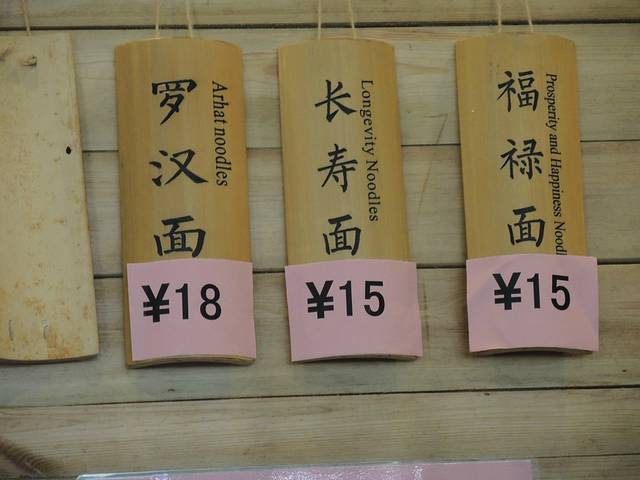 罗汉面
Arhat noodles
¥18
长寿面
Longevity Noodles
¥15
福禄面
Prosperity and Happiness Noodl
¥15